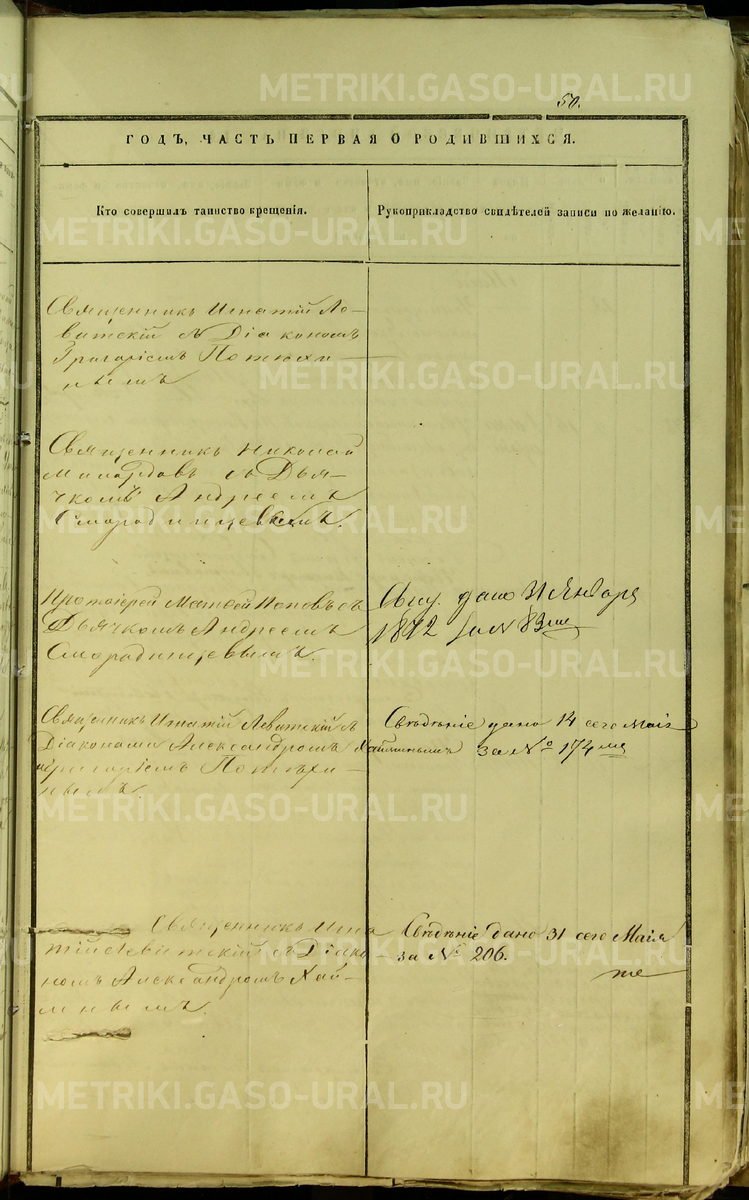 50.
ГОДЪ, ЧАСТЬ ПЕРВАЯ О РОДИВШИХСЯ.
Кто совершилъ таинство крещенія.
Рукоприкладство свидѣтелей записи по желанію.
Священникъ Игнатій Ле-
витскій съ Діакономъ
Григоріемъ Потехи-
нымъ
Священникъ Николай
Милордовъ съ Дья-
чкомъ Андреемъ
Смородинцевымъ.
Протоіерей Матѳей Поповъ съ
Дьячкомъ Андреемъ
Смородинцевымъ.
дано 31 Января
1872 за № 83
Священникъ Игнатій Левитскій съ
Діаконами Александромъ Хайминымъ
и Григоріемъ Потѣхи-
нымъ.
Свѣдѣніе дано 14 сего Маія
за № 174
Священникъ Игна
тій Левитскій съ Діако-
номъ Александромъ Хай-
минымъ.
Свѣдѣніе дано 31 сего Маія
за № 206.
METRIKI.GASO-URAL.RU